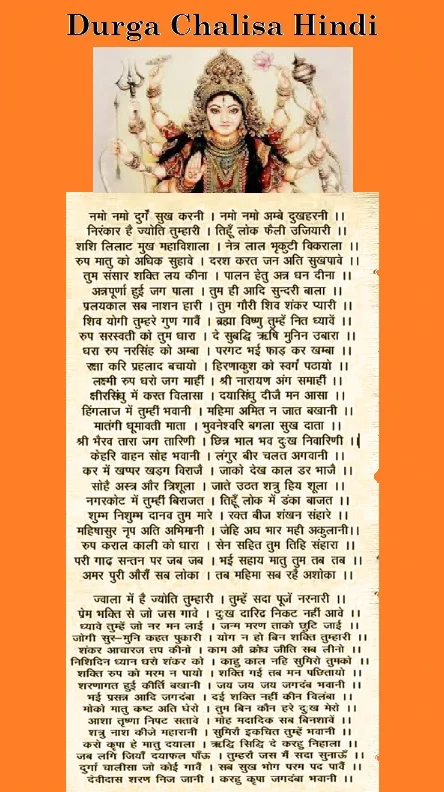 Durga Chalisa Hindi
नमो नमो दुर्गे सुख करनी । नमो नमो अम्बे दुखहरनी ।।
निरंकार है ज्योति तुम्हारी । तिहूँ लोक फैली उजियारी ।।
शशि लिलाट मुख महाविशाला । नेत्र लाल भृकुटी विकराला ।।
रुप मातु को अधिक सुहावे । दरश करत जन अति सुखपावे ।।
तुम संसार शक्ति लय कीना । पालन हेतु अन्न धन दीना ।।
अन्नपूर्णा हुई जग पाला । तुम ही आदि सुन्दरी बाला ।।
प्रलयकाल सब नाशन हारी । तुम गौरी शिव शंकर प्यारी ।।
शिव योगी तुम्हरे गुण गावैं । ब्रह्मा विष्णु तुम्हें नित ध्यावें ।।
रुप सरस्वती को तुम धारा । दे सुबद्धि ऋषि मुनिन उबारा ।।
धरा रुप नरसिंह को अम्बा । परगट भई फाड़ कर खम्बा ।।
रक्षा करि प्रहलाद बचायो । हिरणाकुश को स्वर्ग पठायो ।।
लक्ष्मी रुप धरो जग माहीं । श्री नारायण अंग समाहीं ।।
क्षीरसिंधु में करत विलासा । दयासिंधु दीजै मन आसा ।।
हिंगलाज में तुम्हीं भवानी । महिमा अमित न जात बखानी ।।
मातंगी धूमावती माता । भुवनेश्वरि बगला सुख दाता ।।
श्री भैरव तारा जग तारिणी । छिन्न भाल भव दुःख निवारिणी ।।
केहरि वाहन सोह भवानी । लंगुर बीर चलत अगवानी ।।
कर में खप्पर खड़ग विराजै । जाको देख काल डर भाजै ।।
सोहै अस्त्र और त्रिशूला । जाते उठत शत्रु हिय शूला ।।
नगरकोट में तुम्हीं बिराजत । तिहूँ लोक में डंका बाजत ।।
शुम्भ निशुम्भ दानव तुम मारे । रक्त बीज शंखन संहारे ।।
महिषासुर नृप अति अभिमानी । जेहि अघ भार मही अकुलानी।।
रुप कराल काली को धारा । सेन सहित तुम तिहि संहारा ।।
परी गाढ़ सन्तन पर जब जब । भई सहाय मातु तुम तब तब ।।
अमर पुरी औरौं सब लोका । तब महिमा सब रहैं अशोका ।।
ज्वाला में है ज्योति तुम्हारी । तुम्हें सदा पूजें नरनारी ।।
प्रेम भक्ति से जो जस गावे । दुःख दारिद्र निकट नहीं आवे ।।
ध्यावे तुम्हें जो नर मन लाई । जन्म मरण ताको छूटि जाई ।।
जोगी सुर-मुनि कहत पुकारी । योग न हो बिन शक्ति तुम्हारी ।।
शंकर आचारज तप कीनो । काम औ क्रोध जीति सब लीनो ।।
निशिदिन ध्यान धरो शंकर को । काहु काल नहि सुमिरो तुमको ।।
शक्ति रुप को मरम न पायो । शक्ति गई तब मन पछितायो ।।
शरणागत हुई कीर्ति बखानी । जय जय जय जगदंब भवानी ।।
भई प्रसन्न आदि जगदंबा । दई शक्ति नहीं कीन चिलंबा ।।
मोको मातु कष्ट अति घेरो । तुम बिन कौन हरे दुःख मेरो ।।
आशा तृष्णा निपट सतावे । मोह मदादिक सब बिनशावें ।।
शत्रु नाश कीजे महारानी । सुमिरौं इकचित तुम्हें भवानी ।।
करो कृपा हे मातु दयाला । ऋद्धि सिद्धि दे करहु निहाला ।।
जब लगि जियाँ दयाफल पाँऊ । तुम्हरौं जस मैं सदा सुनाऊँ ।।
दुर्गा चालीसा जो कोई गावैं । सब सुख भोग परम पद पावैं ।।
देवीदास शरण निज जानी । करहु कृपा जगदंबा भवानी ।।